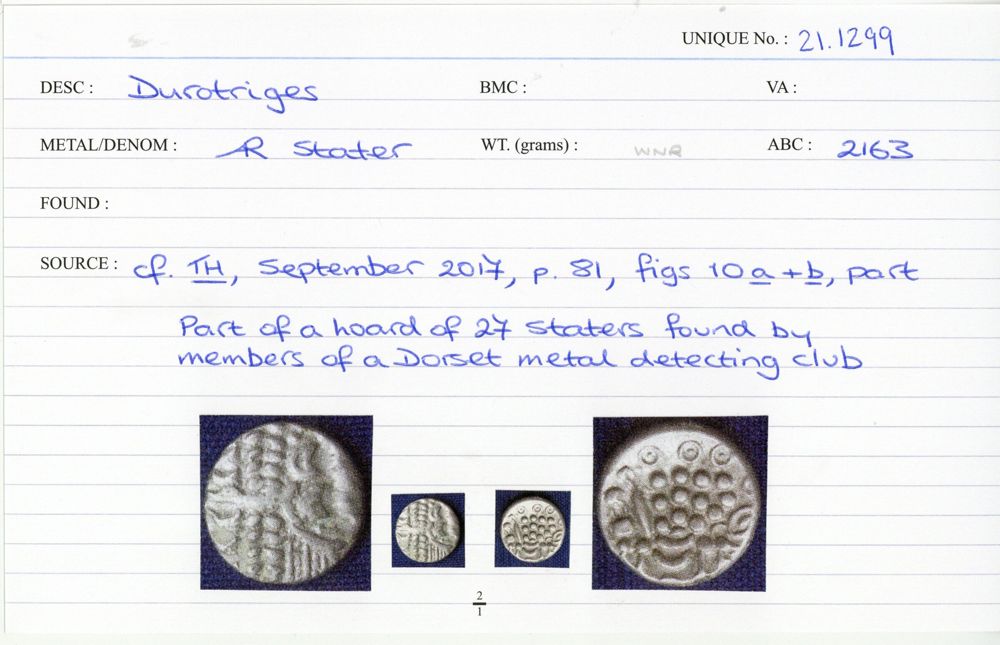 UNIQUE No. : 21.1299
DESC : Durotriges BMC : VA :
METAL/DENOM : AR Stater WT. (grams) : WNR ABC : 2163
FOUND :
SOURCE : cf. TH, September 2017, p. 81, figs 10a+b, part
Part of a hoard of 27 staters found by
members of a Dorset metal detecting club
2
1